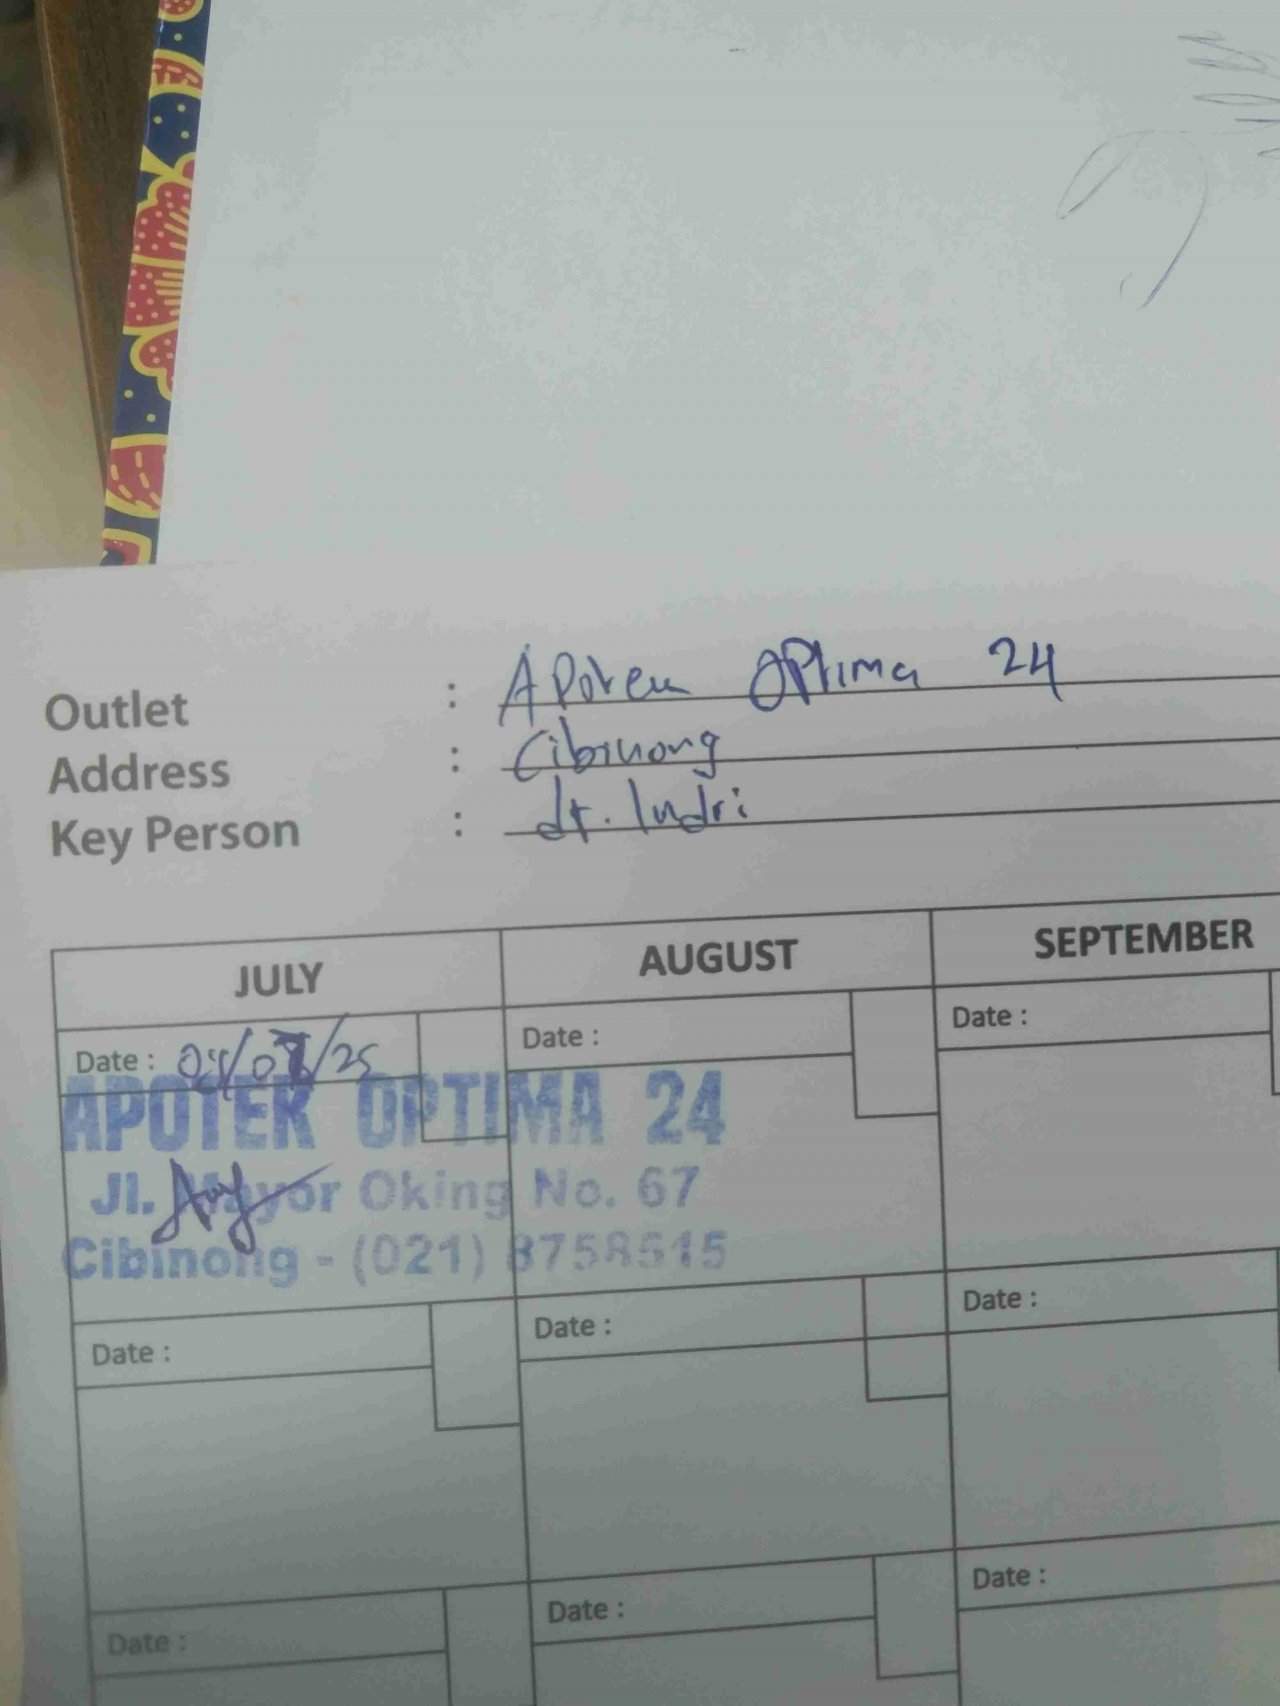 Outlet : Apotek Optima 24
Address : Cibinong
Key Person : dr. Indri
JULY AUGUST SEPTEMBER
Date : Date : Date :
APOTEK OPTIMA 24
Jl. Mayor Oking No. 67
Cibinong - (021) 8758515
Date : Date : Date :
Date : Date : Date :